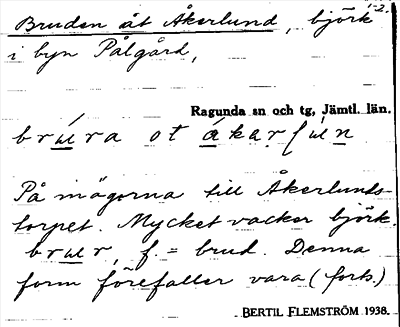 Bruden åt Åkerlund, björk
1-2.
i byn Pålgård,
Ragunda sn och tg, Jämtl. län.
ot
På mågorna till Åkerlunds-
torpet. Mycket vacker björk.
f. = brud. Denna
form förefaller vara (forts.)
BERTIL FLEMSTRÖM 1938.